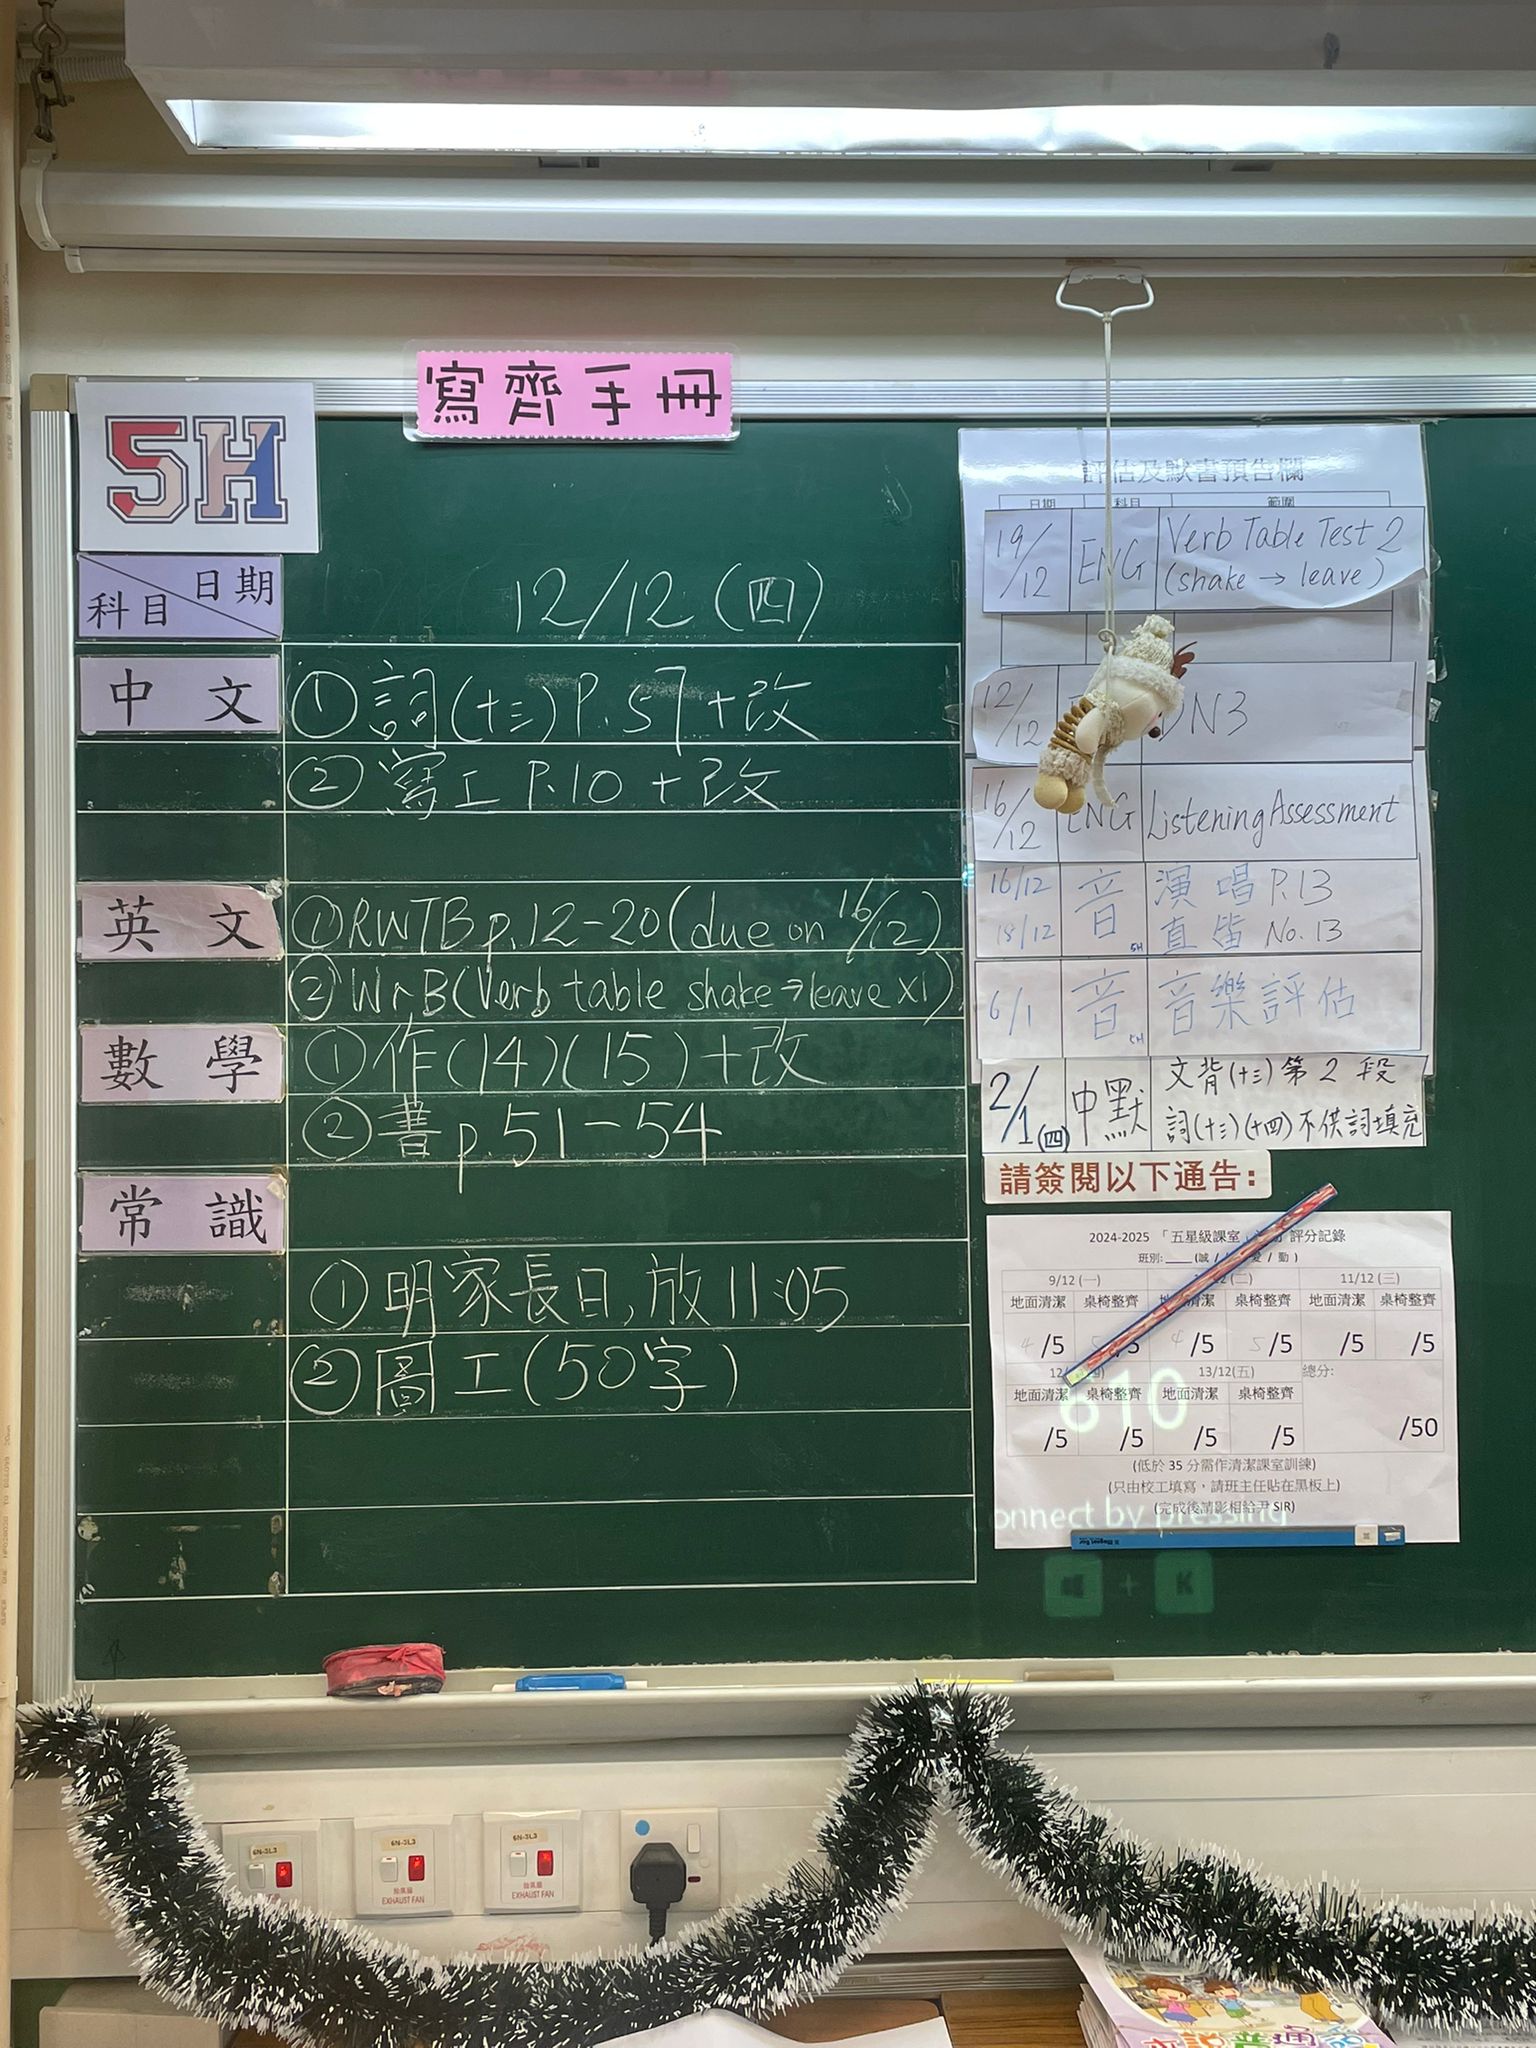 寫齊手冊
5H
日期
科目
12/12 (四)
中文
① 詞(十三) P.57 + 改
② 寫工 P.10 + 改
英文
① RWTB p.12-20 (due on 16/12)
② WrB (Verb table shake → leave x1)
數學
① 作(14)(15) + 改
② 書 p.51-54
常識
① 明家長日, 放11:05
② 圖工 (50字)
評估及默書預告欄
日期 科目 範圍
19/12 ENG Verb Table Test 2
(shake → leave)
12/12 DN3
16/12 ENG Listening Assessment
16/12 音 演唱 P.13
18/12 直笛 No.13
5H
6/1 音 音樂評估
5H
2/1 (四) 中默 文背(十三)第2段
詞(十三)(十四)不供詞填充
請簽閱以下通告:
2024-2025 「五星級課室」 評分記錄
班別: (誠 / / 愛 / 勤 )
9/12 (一) (二) 11/12 (三)
地面清潔 桌椅整齊 地面清潔 桌椅整齊 地面清潔 桌椅整齊
4/5 5/5 4/5 5/5 /5 /5
13/12(五) 總分:
地面清潔 桌椅整齊 地面清潔 桌椅整齊
/5 /5 /5 /5 /50
(低於 35 分需作清潔課室訓練)
(只由校工填寫，請班主任貼在黑板上)
(完成後請影相給尹 SIR)
610
onnect by pressing
+ K
6N-3L3
6N-3L3
抽氣扇
EXHAUST FAN
6N-3L3
抽氣扇
EXHAUST FAN